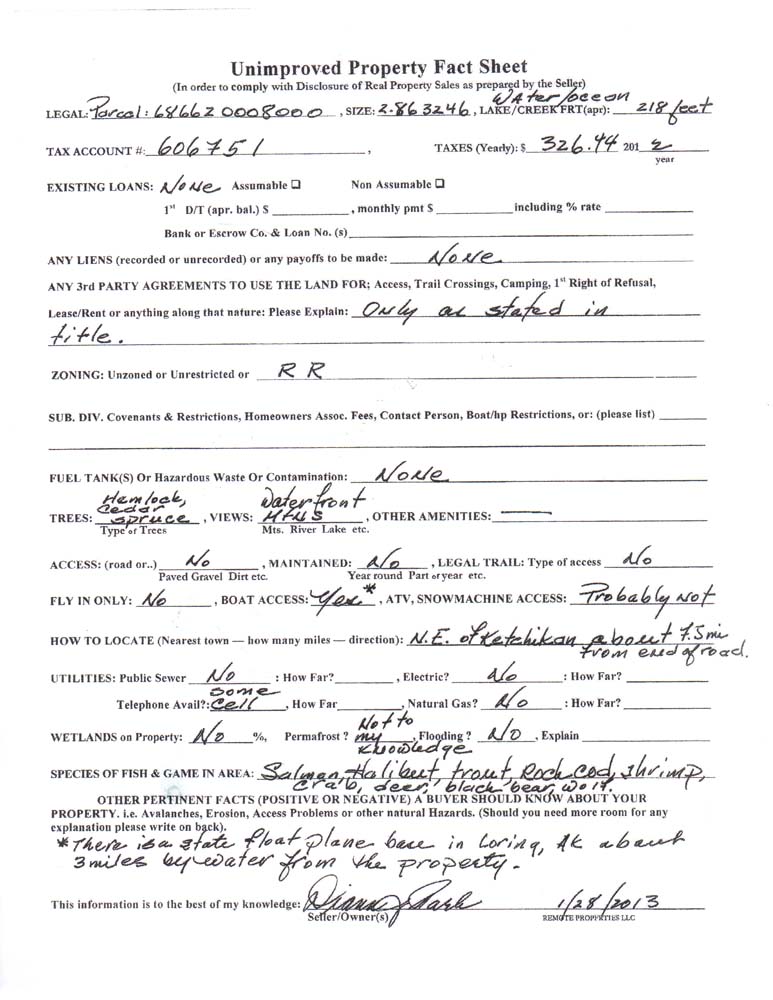 Unimproved Property Fact Sheet
(In order to comply with Disclosure of Real Property Sales as prepared by the Seller)
Water/ocean
LEGAL: Parcel: 686620008000, SIZE: 2.863246, LAKE/CREEK FRT(apr): 218 feet
TAX ACCOUNT #: 606751, TAXES (Yearly): $ 326.44 2012
year
EXISTING LOANS: None Assumable ☐ Non Assumable ☐
1st D/T (apr. bal.) $ ____________, monthly pmt $ ____________ including % rate ____________
Bank or Escrow Co. & Loan No. (s) ____________
ANY LIENS (recorded or unrecorded) or any payoffs to be made: None
ANY 3rd PARTY AGREEMENTS TO USE THE LAND FOR; Access, Trail Crossings, Camping, 1st Right of Refusal,
Lease/Rent or anything along that nature: Please Explain: Only as stated in
title.
ZONING: Unzoned or Unrestricted or RR
SUB. DIV. Covenants & Restrictions, Homeowners Assoc. Fees, Contact Person, Boat/hp Restrictions, or: (please list) ________
FUEL TANK(S) Or Hazardous Waste Or Contamination: None
Hemlock, Waterfront
Cedar
TREES: spruce, VIEWS: MTNS, OTHER AMENITIES: —
Type of Trees Mts. River Lake etc.
ACCESS: (road or..) No, MAINTAINED: No, LEGAL TRAIL: Type of access No
Paved Gravel Dirt etc. Year round Part or year etc.
FLY IN ONLY: No, BOAT ACCESS: Yes*, ATV, SNOWMACHINE ACCESS: Probably not
HOW TO LOCATE (Nearest town — how many miles — direction): N.E. of Ketchikan about 7.5 mi
from end of road.
UTILITIES: Public Sewer No : How Far? ________, Electric? No : How Far? ________
some
Telephone Avail?: Cell, How Far ________, Natural Gas? No : How Far? ________
Not to
WETLANDS on Property: No %, Permafrost ? my, Flooding ? No, Explain ________
knowledge
SPECIES OF FISH & GAME IN AREA: Salmon, Halibut, trout, Rock Cod, shrimp,
crab, deer, black bear, wolf.
OTHER PERTINENT FACTS (POSITIVE OR NEGATIVE) A BUYER SHOULD KNOW ABOUT YOUR
PROPERTY. i.e. Avalanches, Erosion, Access Problems or other natural Hazards. (Should you need more room for any
explanation please write on back).
*There is a state float plane base in Loring, AK about
3 miles by water from the property.
This information is to the best of my knowledge: 1/28/2013
Seller/Owner(s) REMOTE PROPERTIES LLC